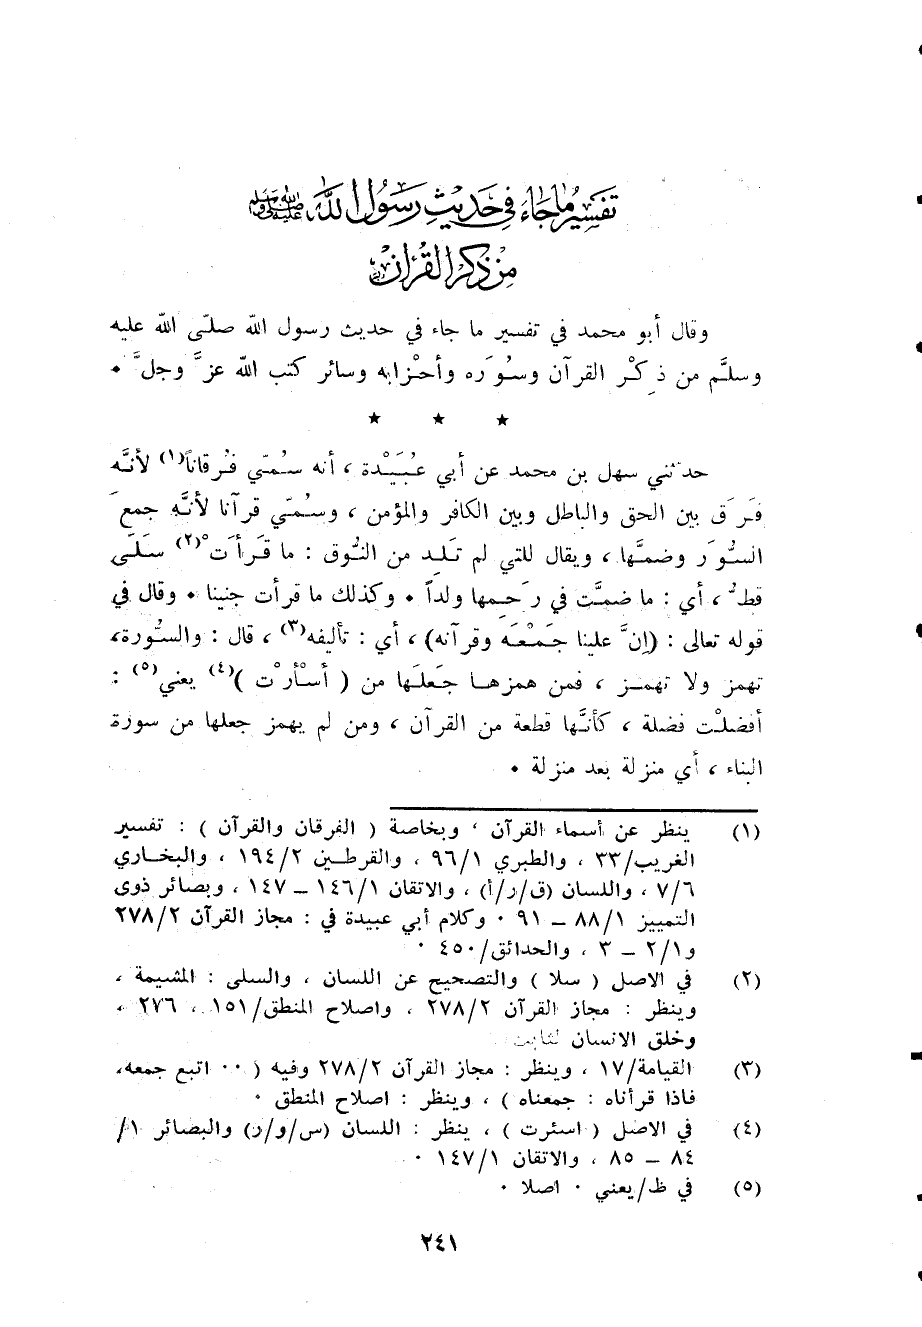 تفسير ما جاء في حديث رسول الله ﷺ
من ذكر القرآن
وقال أبو محمد في تفسير ما جاء في حديث رسول الله صلّى الله عليه
وسلَّم من ذِكْر القرآن وسُوَره وأحْزابه وسائر كتب الله عزَّ وجلَّ ٠
★ ★ ★
حدثني سهل بن محمد عن أبي عُبَيْدة ، أنه سُمّي فُرقاناً(١) لأنَّه
فَرَق بين الحق والباطل وبين الكافر والمؤمن ، وسُمّي قرآنا لأنَّه جمعَ
السُّوَر وضمَّها ، ويقال للتي لم تَلِد من النُّوق : ما قَرأَتْ(٢) سَلَى
قطُّ ، أي : ما ضمَّت في رَحِمها ولداً ٠ وكذلك ما قرأت جنينا ٠ وقال في
قوله تعالى : (إنَّ علينا جَمْعَه وقرآنه) ، أي : تأليفه(٣) ، قال : والسُّورة،
تهمز ولا تهمز ، فمن همزها جَعلَها من ( أسْأَرْت )(٤) يعني(٥) :
أفضلْت فضلة ، كأنَّها قطعة من القرآن ، ومن لم يهمز جعلها من سورة
البناء ، أي منزلة بعد منزلة ٠
(١) ينظر عن أسماء القرآن ، وبخاصة ( الفرقان والقرآن ) : تفسير
الغريب/٣٣ ، والطبري ٩٦/١ ، والقرطين ١٩٤/٢ ، والبخاري
٧/٦ ، واللسان (ق/ر/أ) ، والاتقان ١٤٦/١ – ١٤٧ ، وبصائر ذوى
التمييز ٨٨/١ – ٩١ ٠ وكلام أبي عبيدة في : مجاز القرآن ٢٧٨/٢
و٢/١ – ٣ ، والحدائق/٤٥٠ ٠
(٢) في الاصل ( سلا ) والتصحيح عن اللسان ، والسلى : المشيمة ،
وينظر : مجاز القرآن ٢٧٨/٢ ، واصلاح المنطق/١٥١ ، ٢٧٦ ،
وخلق الانسان لثابت
(٣) القيامة/١٧ ، وينظر : مجاز القرآن ٢٧٨/٢ وفيه ( ٠٠ اتبع جمعه،
فاذا قرأناه : جمعناه ) ، وينظر : اصلاح المنطق ٠
(٤) في الاصل ( اسئرت ) ، ينظر : اللسان (س/و/ر) والبصائر ١/
٨٤ – ٨٥ ، والاتقان ١٤٧/١ ٠
(٥) في ظ/يعني ٠ اصلا ٠
٢٤١